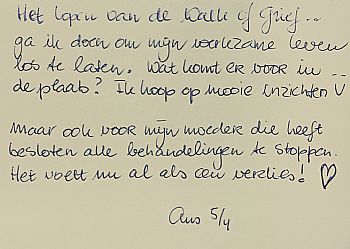 Het lopen van de Walk of Grief...
ga ik doen om mijn werkzame leven
los te laten. Wat komt er voor in ...
de plaats? Ik hoop op mooie inzichten V
Maar ook voor mijn moeder die heeft
besloten alle behandelingen te stoppen.
Het voelt nu al als een verlies! ♡
Ans 5/4